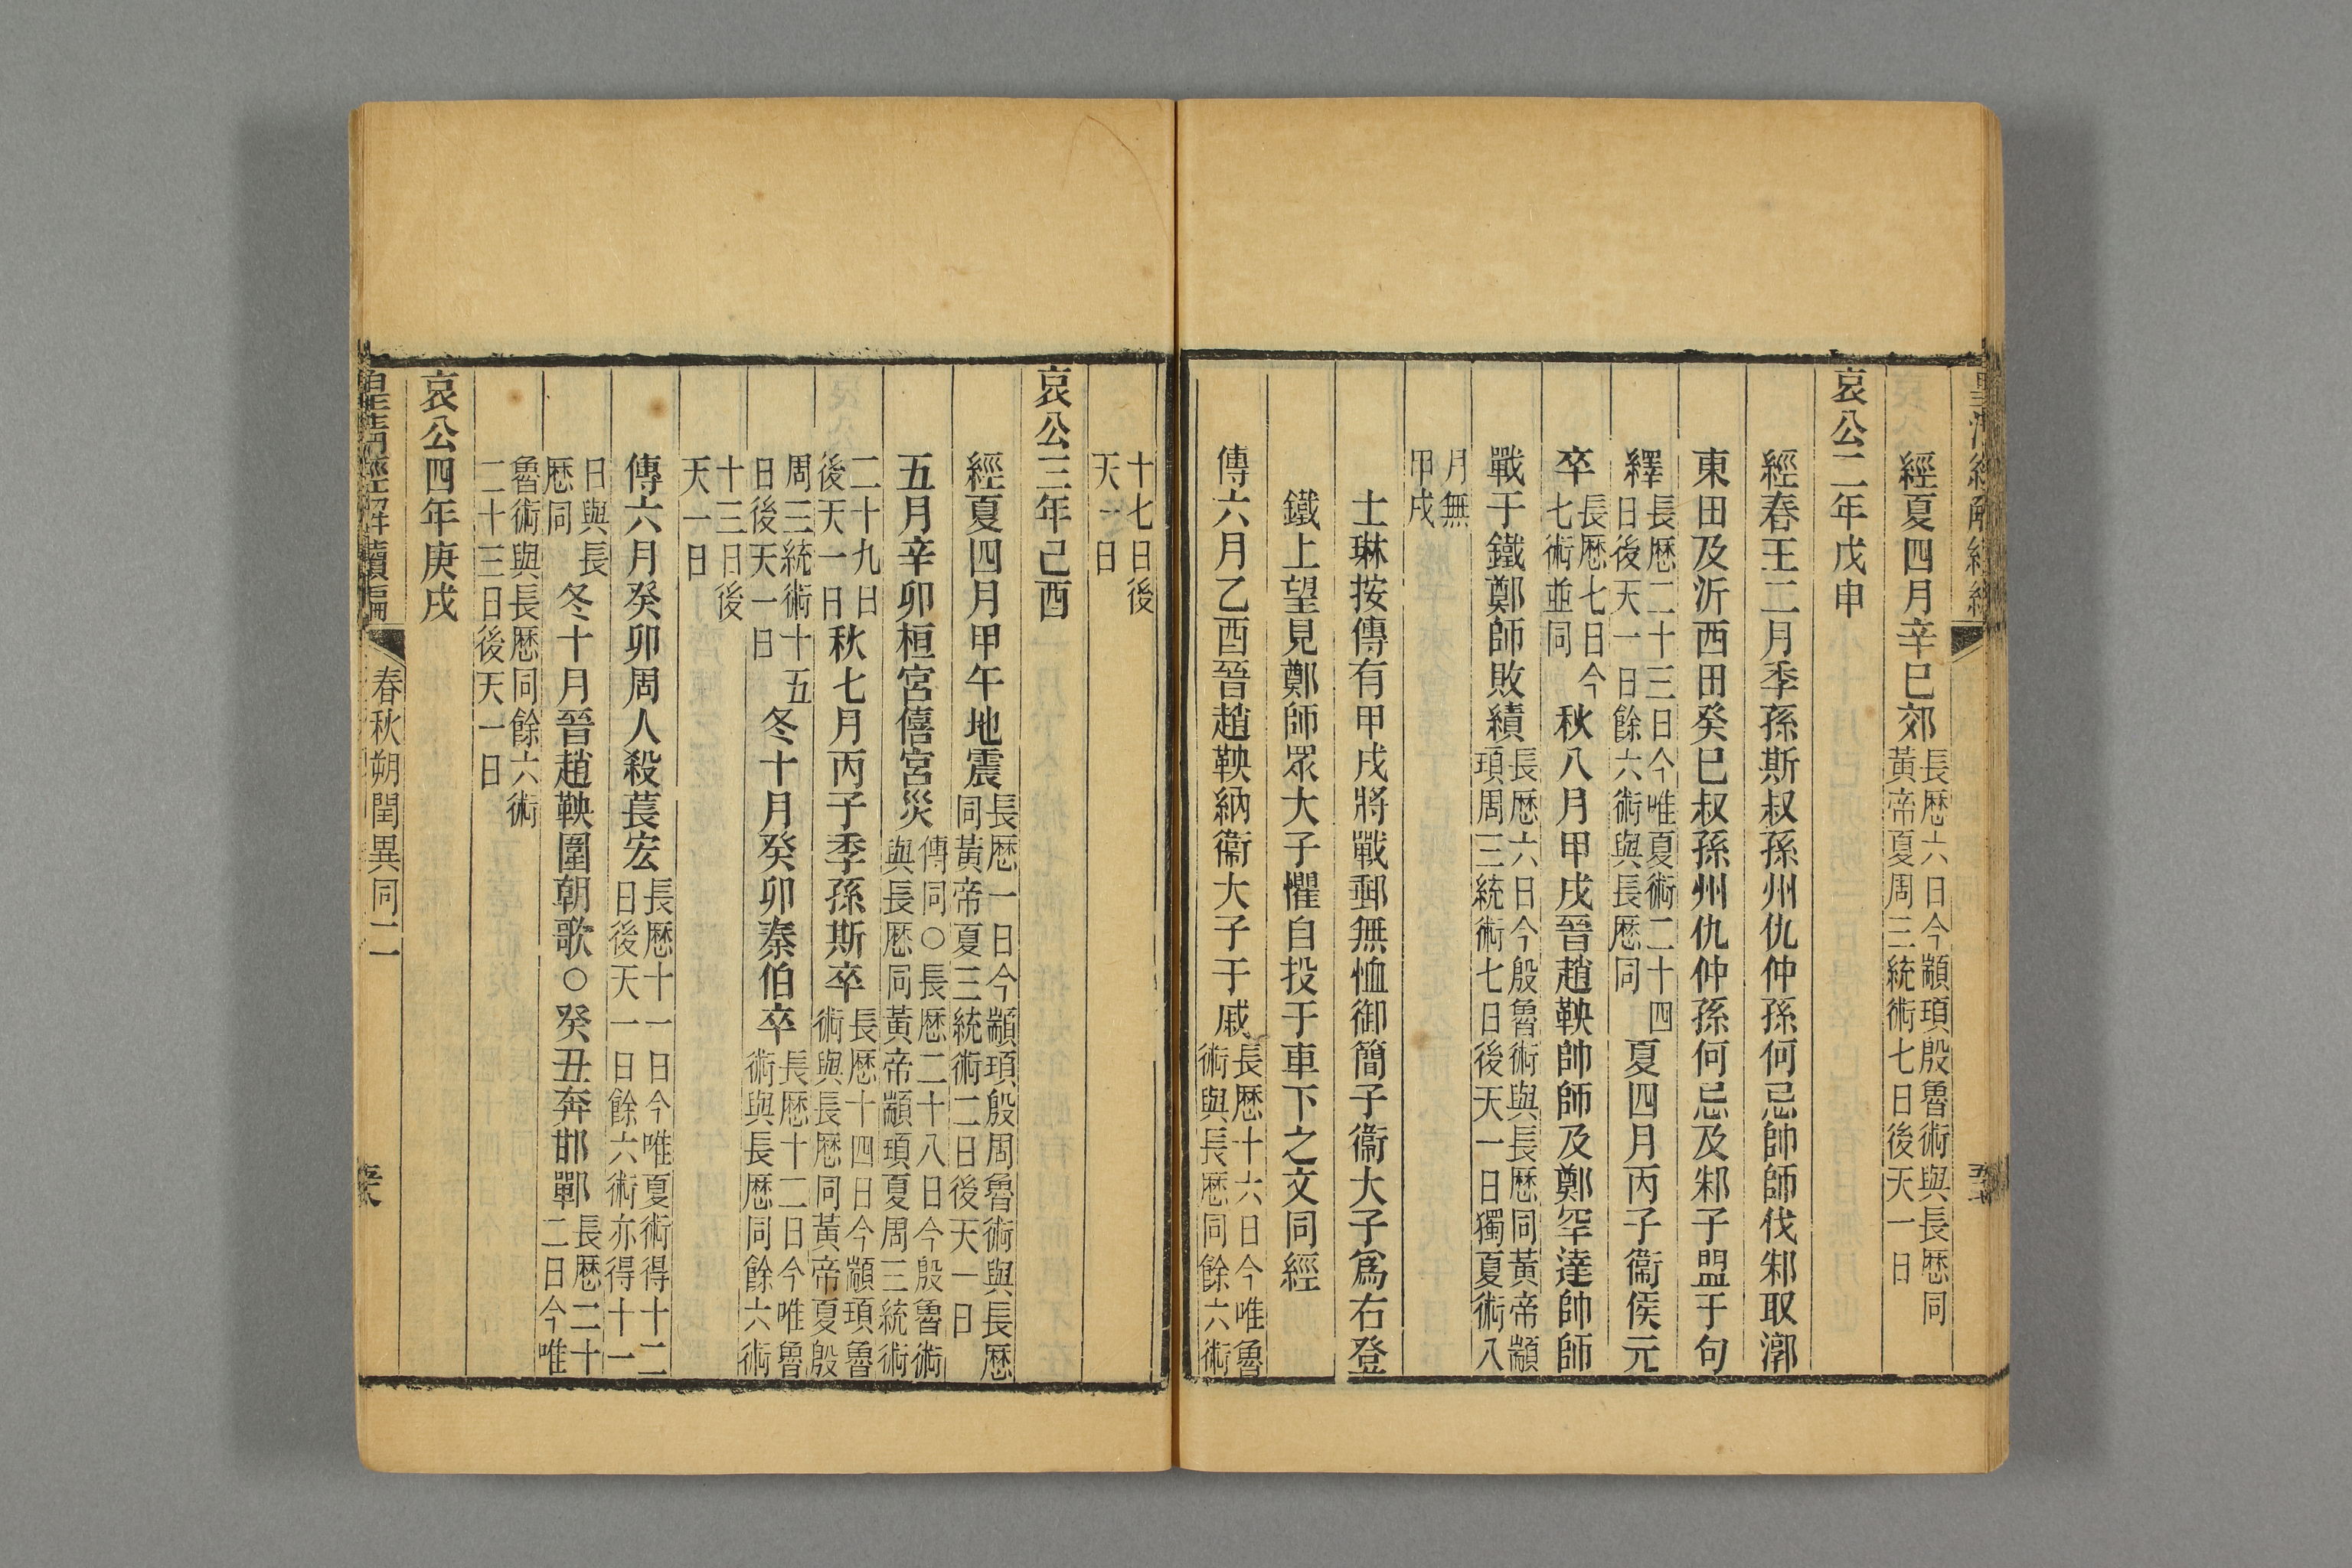 經夏四月辛巳郊長厯六日今顓頊殷魯術與長厯同黃帝夏周三統術七日後天一日
哀公二年戊申
經春王二月季孫斯叔孫州仇仲孫何忌帥師伐邾取漷
東田及沂西田癸巳叔孫州仇仲孫何忌及邾子盟于句
繹長厯二十三日今唯夏術二十四日後天一日餘六術與長厯同夏四月丙子衞侯元
卒長厯七日今七術並同秋八月甲戌晉趙鞅帥師及鄭罕達帥師
戰于鐵鄭師敗績長厯六日今殷魯術與長厯同黃帝顓頊周三統術七日後天一日獨夏術八
月無甲戌
士琳按傳有甲戌將戰郵無恤御簡子衞大子爲右登
鐵上望見鄭師眾大子懼自投于車下之文同經
傳六月乙酉晉趙鞅納衞大子于戚長厯十六日今唯魯術與長厯同餘六術
十七日後天一日
哀公三年己酉
經夏四月甲午地震長厯一日今顓頊殷周魯術與長厯同黃帝夏三統術二日後天一日
五月辛卯桓宮僖宮災傳同○長厯二十八日今殷魯術與長厯同黃帝顓頊夏周三統術
二十九日後天一日秋七月丙子季孫斯卒長厯十四日今顓頊魯術與長厯同黃帝夏殷
周三統術十五日後天一日冬十月癸卯秦伯卒長厯十二日今唯魯術與長厯同餘六術
十三日後天一日
傳六月癸卯周人殺萇宏長厯十一日今唯夏術得十二日後天一日餘六術亦得十一
日與長厯同冬十月晉趙鞅圍朝歌○癸丑奔邯鄲長厯二十二日今唯
魯術與長厯同餘六術二十三日後天一日
哀公四年庚戌
皇淸經解續編
春秋朔閏異同二